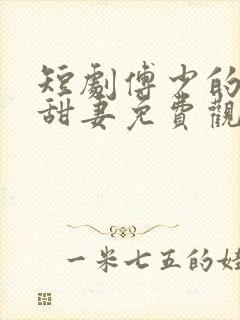 短劇傅少的
甜妻免費觀
一米七五的娃